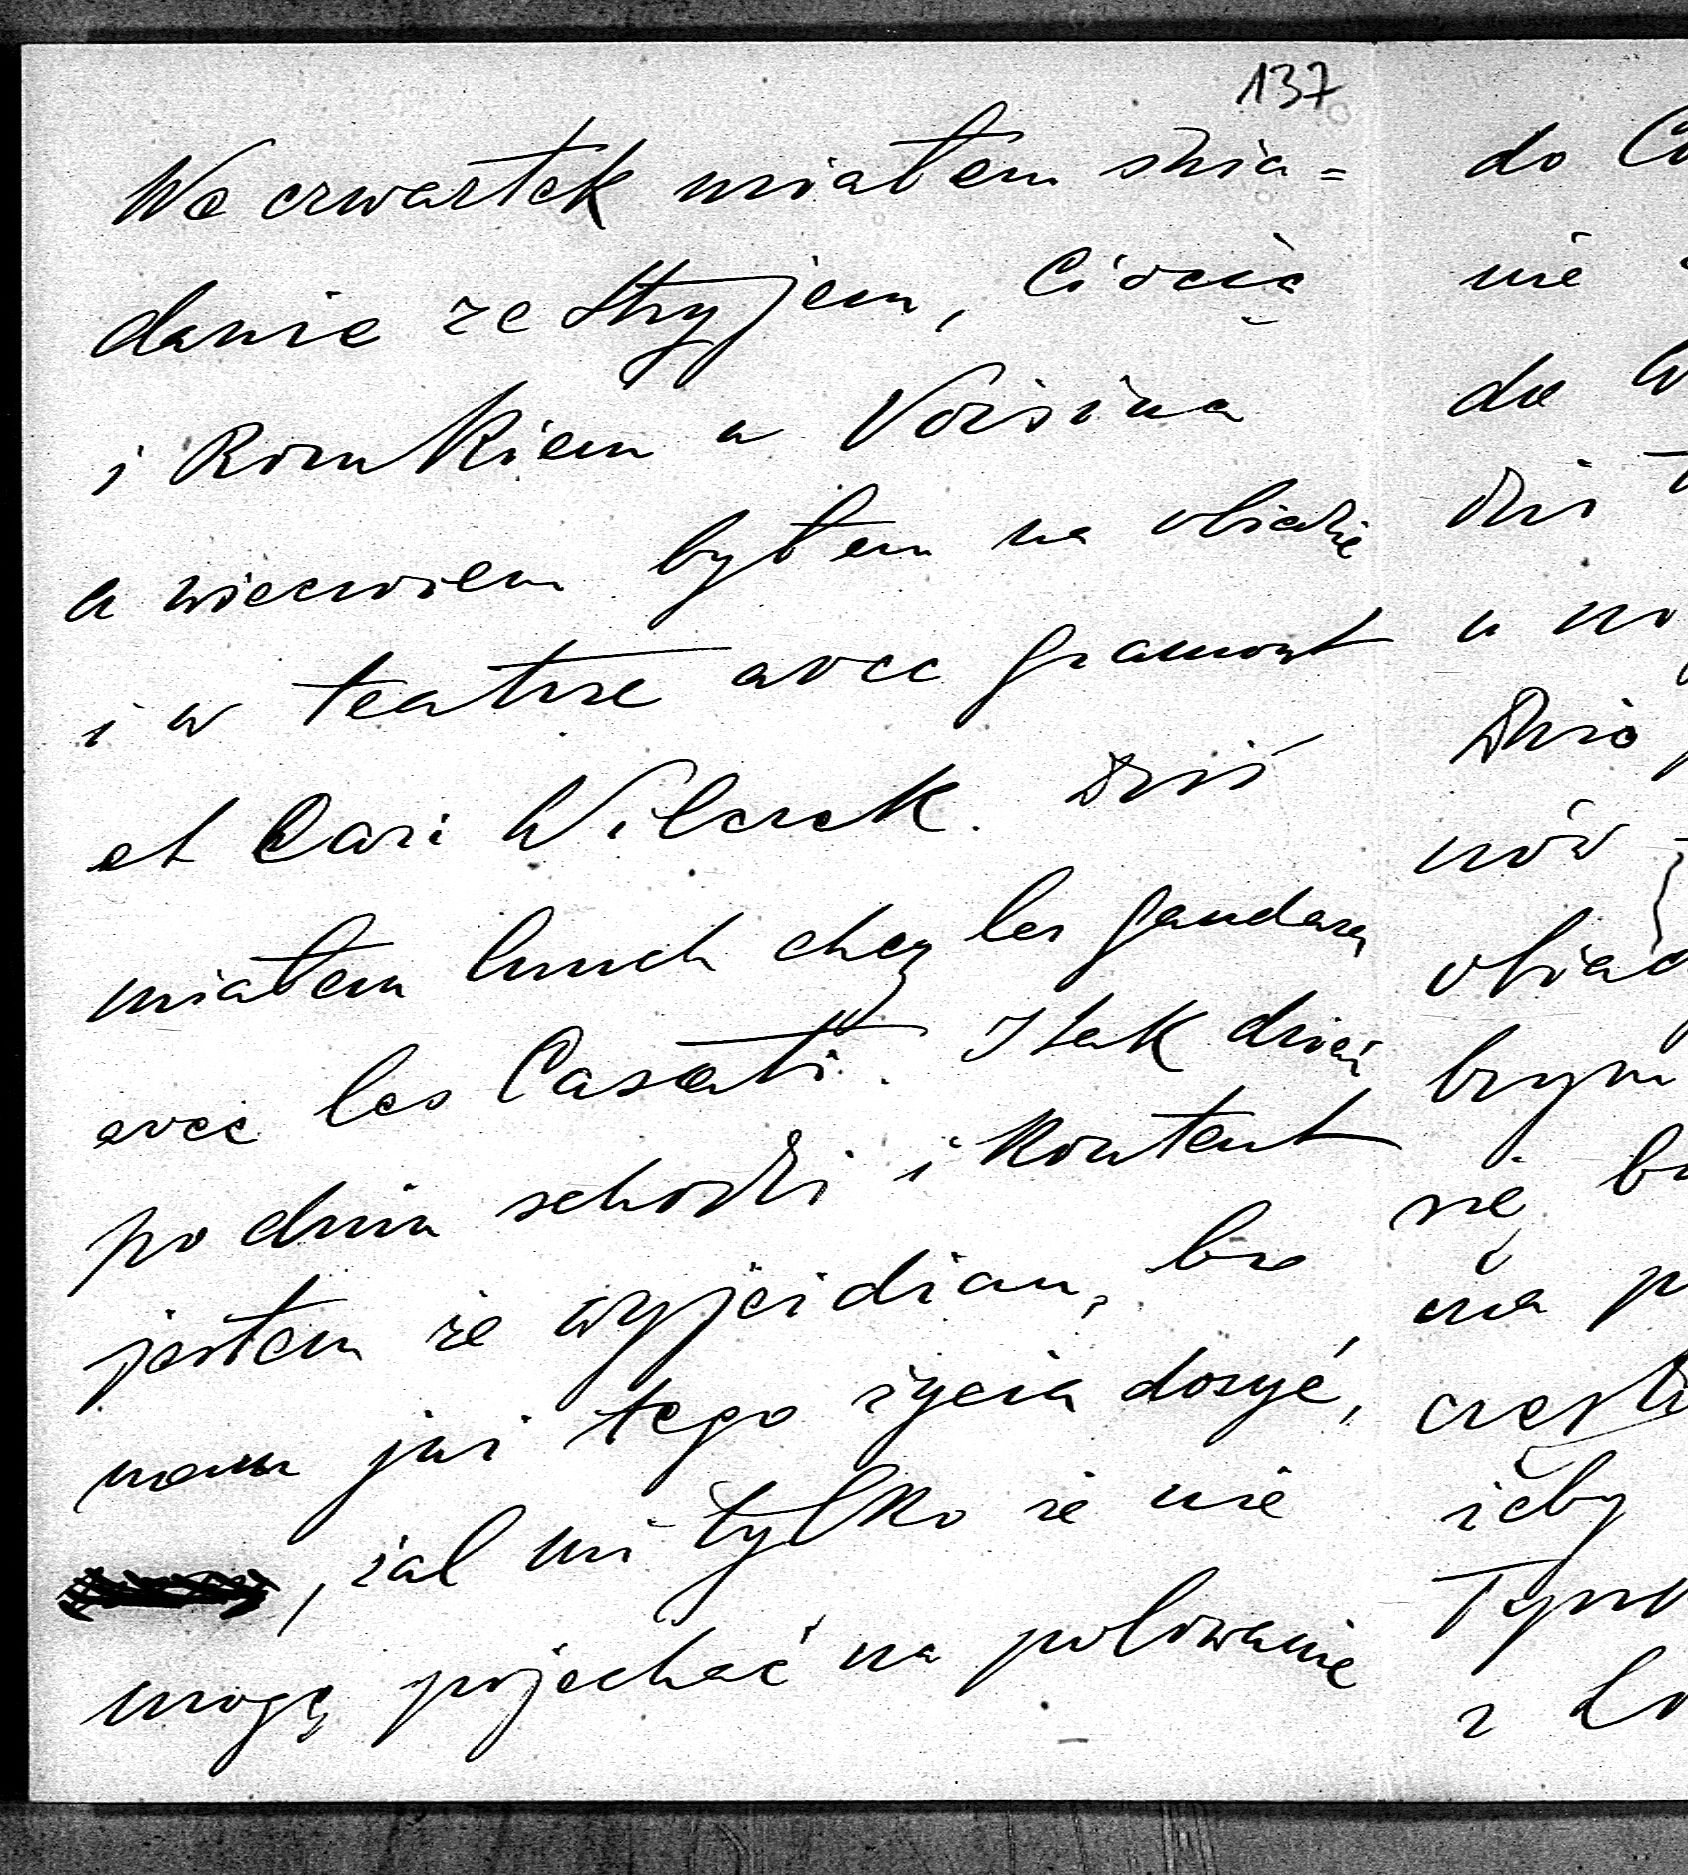 137
We czwartek miałem śnia=
danie ze Stryjem, Ciocią
i Romkiem u Voisina
a wieczorem byłem na obiedzie
i w teatrze avec Gramont
et Cari Wilczek. Dziś
miałem lunch chez les Gandara
avec les Casati. I tak dzień
po dniu schodzi i kontent
jestem że wyjeżdżam, bo
mam już tego życia dosyć,
, żal mi tylko że nie
mogę pojechać na polowanie
do
nie
do
dziś
u
Dziś
nów
obiad
brym
się
na
części
żeby
z